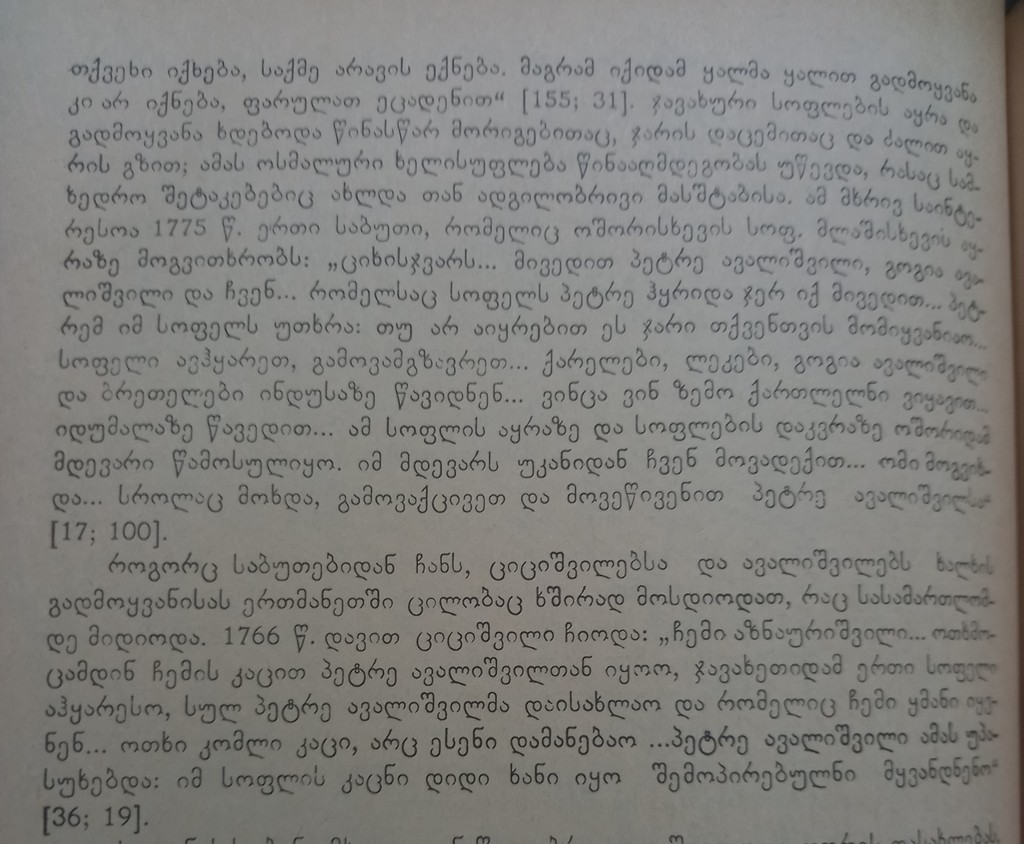 თქვენი იქნება, საქმე არავის ექნება. მაგრამ იქიდამ ყალმა ყალით გადმოყვანა
კი არ იქნება, ფარულათ ეცადენით“ [155; 31]. ჯავახური სოფლების აყრა და
გადმოყვანა ხდებოდა წინასწარ მორიგებითაც, ჯარის დაცემითაც და ძალით აყ-
რის გზით; ამას ოსმალური ხელისუფლება წინააღმდეგობას უწევდა, რასაც სამ-
ხედრო შეტაკებებიც ახლდა თან ადგილობრივი მასშტაბისა. ამ მხრივ საინტე-
რესოა 1775 წ. ერთი საბუთი, რომელიც ოშორისხევის სოფ. მლაშისხევის აყ-
რაზე მოგვითხრობს: „ციხისჯვარს... მივედით პეტრე ავალიშვილი, გოგია ავა-
ლიშვილი და ჩვენ... რომელსაც სოფელს პეტრე ჰყრიდა ჯერ იქ მივედით... პეტ-
რემ იმ სოფელს უთხრა: თუ არ აიყრებით ეს ჯარი თქვენთვის მომიყვანიაო...
სოფელი ავჰყარეთ, გამოვამგზავრეთ... ქარელები, ლეკები, გოგია ავალიშვილი
და ბრეთელები ინდუსაზე წავიდნენ... ვინცა ვინ ზემო ქართლელნი ვიყავით...
იდუმალაზე წავედით... ამ სოფლის აყრაზე და სოფლების დაკვრაზე ოშორიდამ
მდევარი წამოსულიყო. იმ მდევარს უკანიდან ჩვენ მოვადექით... ომი მოგვიხ-
და... სროლაც მოხდა, გამოვაქცივეთ და მოვეწივენით პეტრე ავალიშვილსა“
[17; 100].
როგორც საბუთებიდან ჩანს, ციციშვილებსა და ავალიშვილებს ხალხის
გადმოყვანისას ერთმანეთში ცილობაც ხშირად მოსდიოდათ, რაც სასამართლომ-
დე მიდიოდა. 1766 წ. დავით ციციშვილი ჩიოდა: „ჩემი აზნაურიშვილი... ოთხმო-
ცამდინ ჩემის კაცით პეტრე ავალიშვილთან იყოო, ჯავახეთიდამ ერთი სოფელი
აჰყარესო, სულ პეტრე ავალიშვილმა დაისახლაო და რომელიც ჩემი ყმანი იყვ-
ნენ... ოთხი კომლი კაცი, არც ესენი დამანებაო ...პეტრე ავალიშვილი ამას უპა-
სუხებდა: იმ სოფლის კაცნი დიდი ხანი იყო შემოპირებულნი მყვანდნენო“
[36; 19].